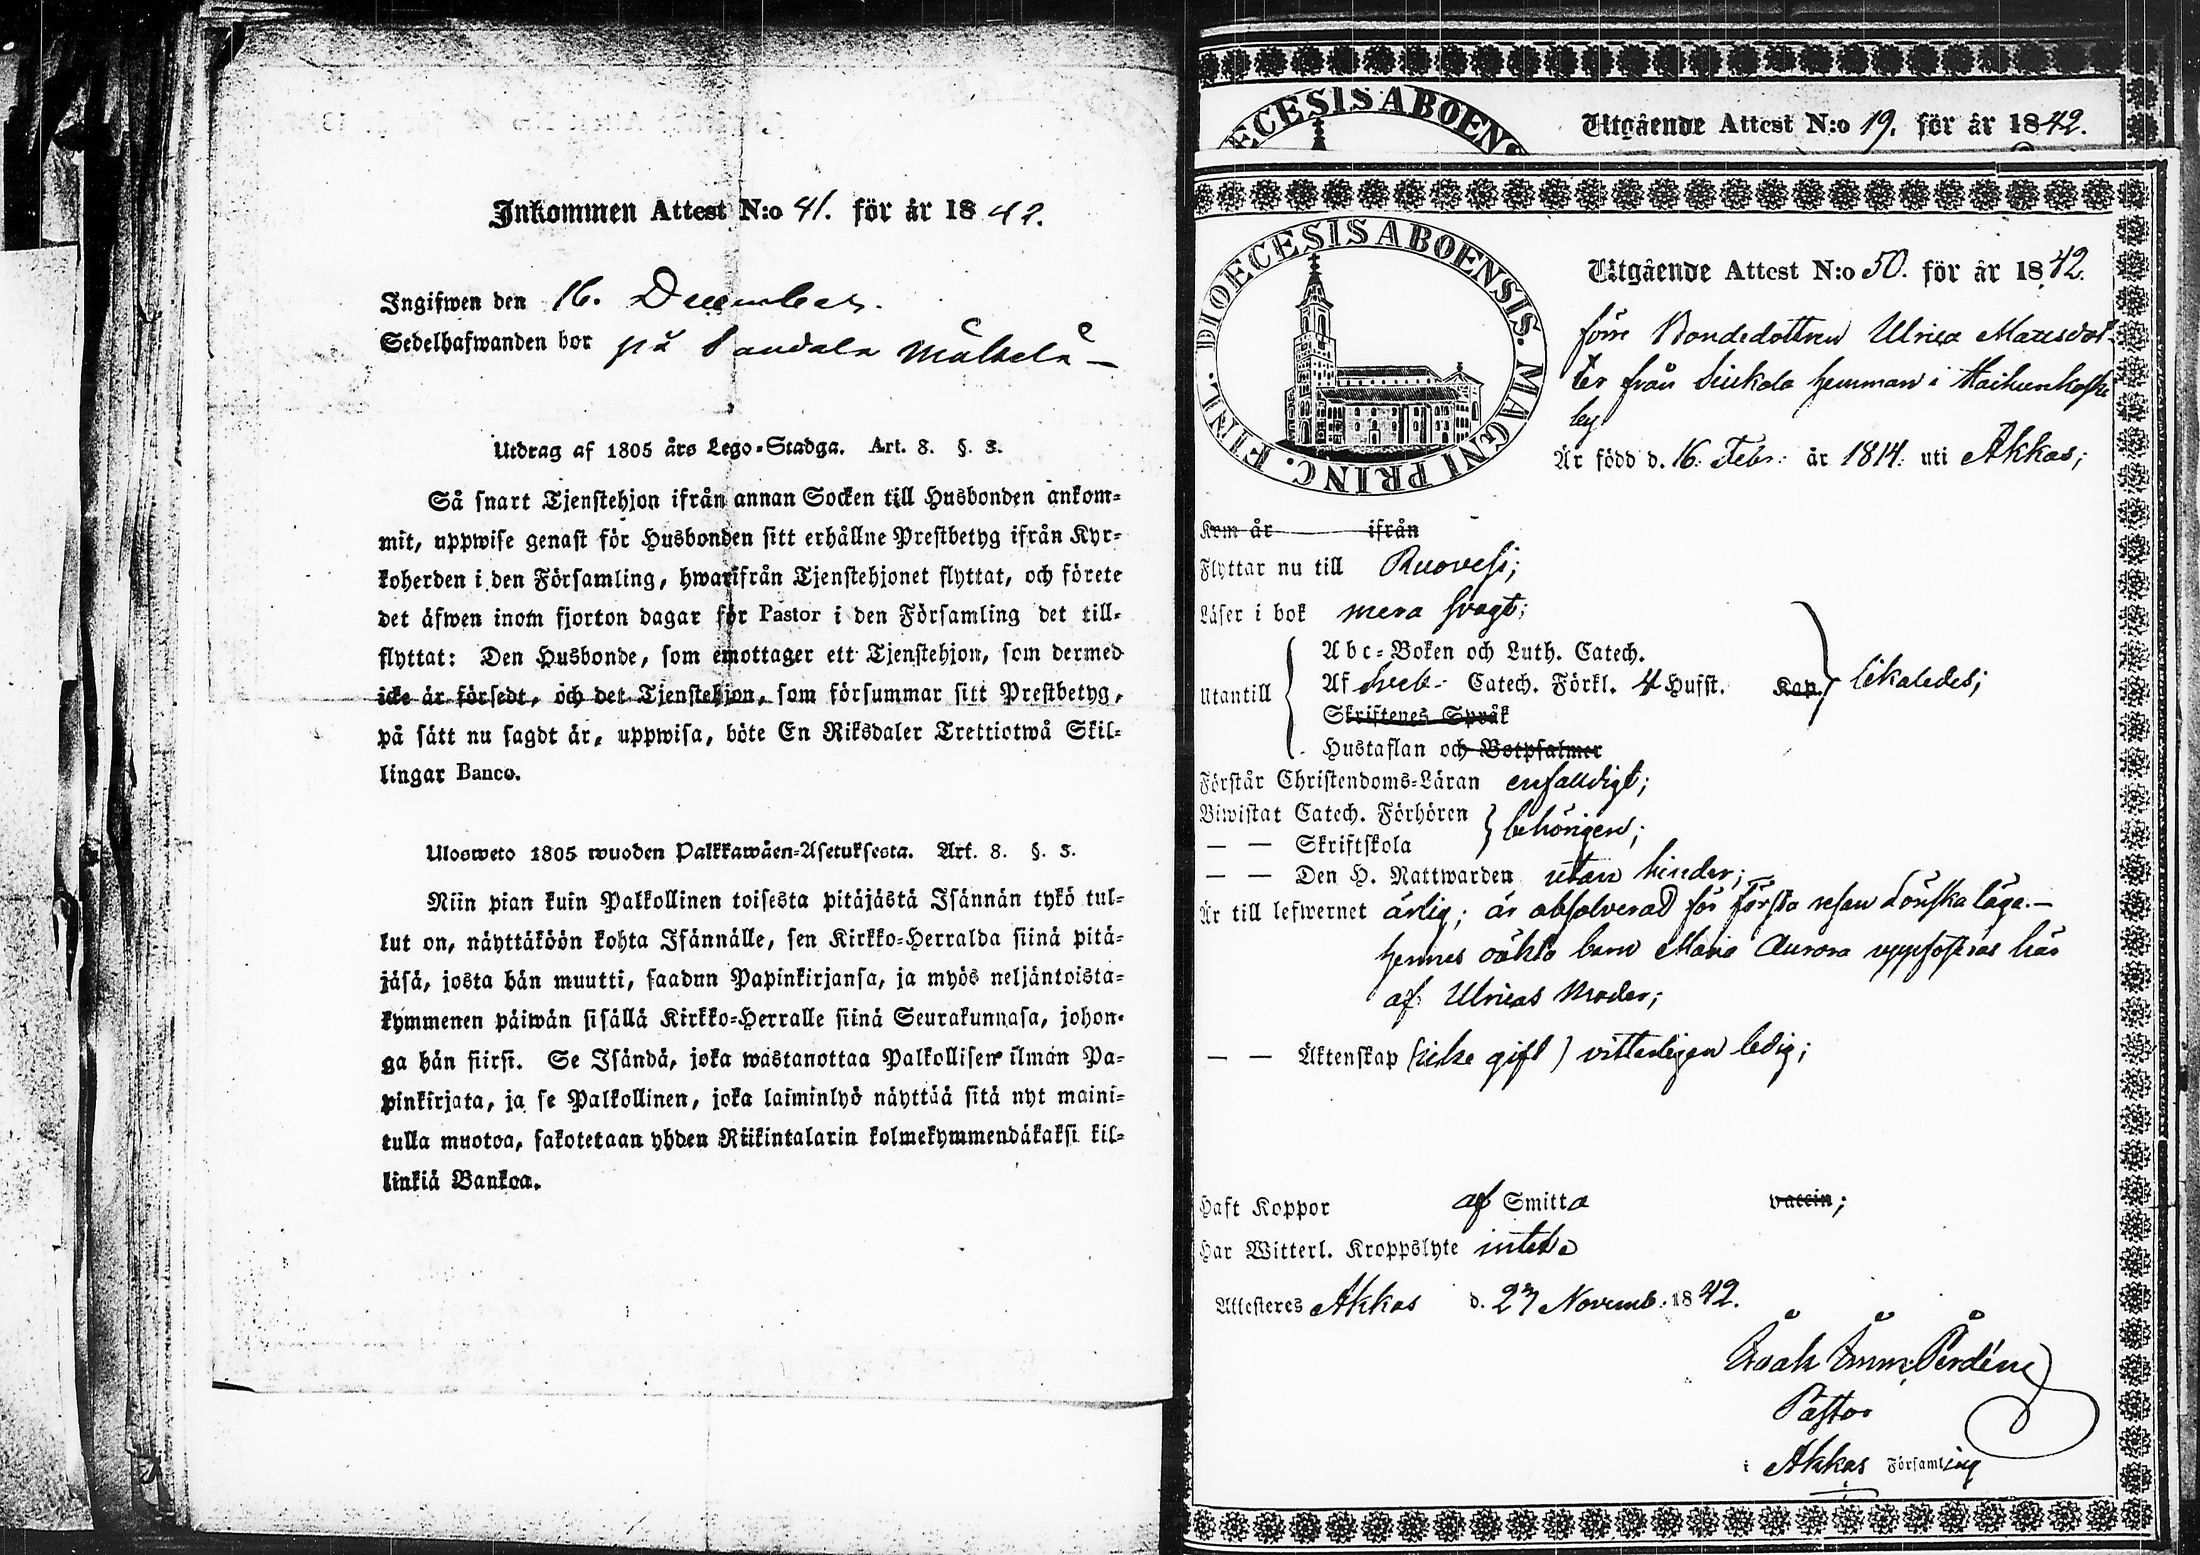 Inkommen Attest N:o 41. för år 1842.
Ingifwen den 16. December.
Sedelhafwanden bor på Sandala Mäkelä —
Utdrag af 1805 års Lego-Stadga. Art. 8. §. 3.
Så snart Tjenstehjon ifrån annan Socken till Husbonden ankom-
mit, uppwise genast för Husbonden sitt erhållne Prestbetyg ifrån Kyr-
koherden i den Församling, hwarifrån Tjenstehjonet flyttat, och förete
det äfwen inom fjorton dagar för Pastor i den Församling det till-
flyttat: Den Husbonde, som emottager ett Tjenstehjon, som dermed
icke är försedt, och det Tjenstehjon, som försummar sitt Prestbetyg,
på sätt nu sagdt är, uppwisa, böte En Riksdaler Trettiotwå Skil-
lingar Banco.
Ulosweto 1805 wuoden Palkkawäen-Asetuksesta. Art. 8. §. 3.
Niin pian kuin Palkollinen toisesta pitäjästä Isännän tykö tul-
lut on, näyttäköön kohta Isännälle, sen Kirkko-Herralda siinä pitä-
jäsä, josta hän muutti, saadun Papinkirjansa, ja myös neljäntoista-
kymmenen päiwän sisällä Kirkko-Herralle siinä Seurakunnasa, johon-
ga hän siirsi. Se Isändä, joka wastanottaa Palkollisen ilman Pa-
pinkirjata, ja se Palkollinen, joka laiminlyö näyttää sitä nyt maini-
tulla muotoa, sakotetaan yhden Riikintalarin kolmekymmendäkaksi kil-
linkiä Bankoa.
ECESIS ABOENS
Utgående Attest N:o 19. för år 1842.
DIOECESIS ABOENSIS. MAGNI PRINC. FINL.
Utgående Attest N:o 50. för år 1842.
förre Bondedottren Ulrica Matsdot-
ter från Siukola hemman i
by
Är född d. 16. Febr: år 1814: uti Akkas;
Kom år ifrån
Flyttar nu till Ruovesi;
Läser i bok mera svagt;
Utantill
Abc-Boken och Luth. Catech.
Af Sveb: Catech. Förkl. 4 Hufst. Kap. likaledes;
Skriftenes Språk
Hustaflan och Botpsalmer
Förstår Christendoms-Läran enfalldigt;
Biwistat Catech. Förhören behörigen;
— — Skriftskola
— — Den H. Nattwarden utan hinder;
Är till lefwernet ärlig; är absolverad för första resan Lönskaläge.—
hennes oäkta barn Maria Aurora uppfostras här
af Ulricas Moder;
— — Äktenskap (icke gift) vitterligen ledig;
Haft Koppor af Smitta vaccin;
Har Witterl. Kroppslyte intet
Attesteres Akkas d. 27 Novemb. 1842.
Pastor
i Akkas Församling